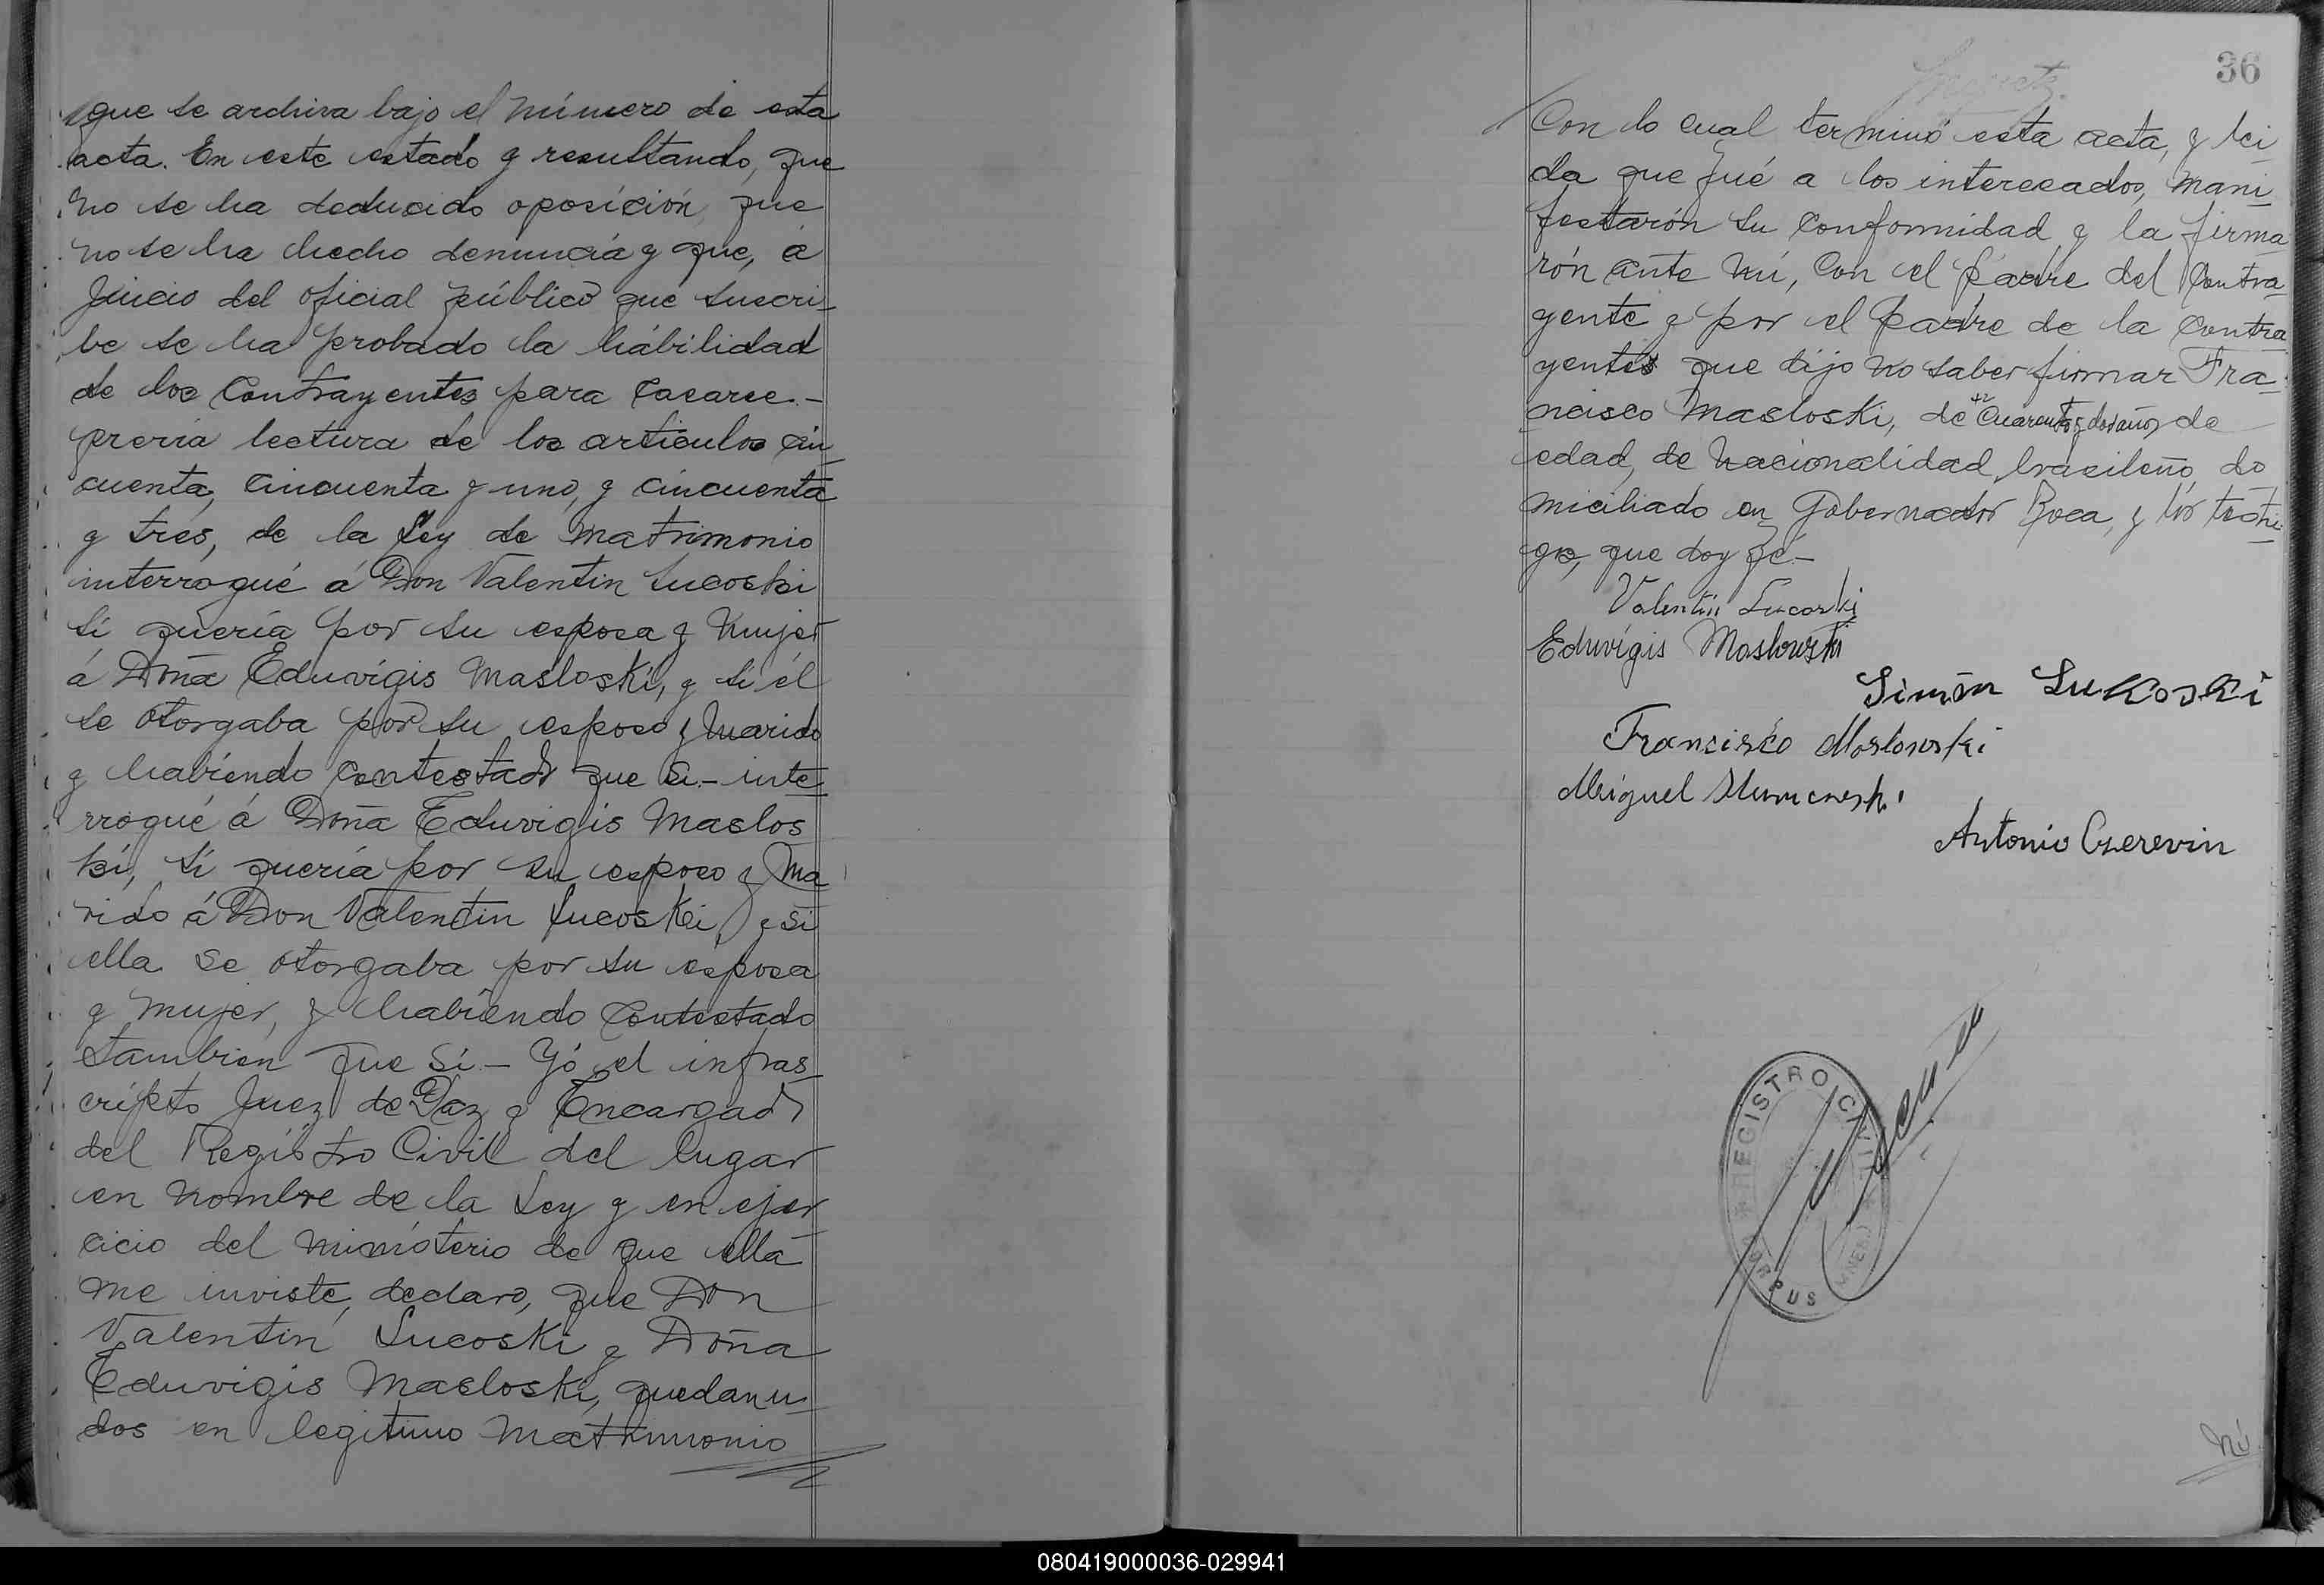 que se archiva bajo el número de esta
acta. En este estado y resultando, que
no se ha deducido oposición, que
no se ha hecho denuncia y que, á
Juicio del oficial público que suscri-
be se ha probado la hábilidad
de los Contrayentes para Casarse.-
previa lectura de los articulos cin
cuenta, Cincuenta y uno, y cincuenta
y tres, de la Ley de Matrimonio
interrogué á Don Valentin Lucoski
si quería por su esposa y Mujer
á Doña Eduvigis Masloski, y si él
se otorgaba por su esposo y Marido
y habiendo Contestado que si.- inte
rrogué á Doña Eduvigis Maslos
ki, si quería por su esposo y Ma
rido á Don Valentin Lucoski, y si
ella se otorgaba por su esposa
y Mujer, y habiendo Contestado
también que Sí.- Yó el infras
cripto Juez de Paz y Encargado
del Registro Civil del lugar
en Nombre de la Ley y en ejer
cicio del Ministerio de que ella
me inviste, declaro, que Don
Valentin Lucoski y Doña
Eduvigis Masloski, quedan u
dos en legitimo Matrimonio
36
Con lo cual terminó esta acta, y lei
da que fué a los interesados, mani
festarón su Conformidad y la firma
rón ante mi, Con el padre del Contra
yente y por el padre de la Contra
yentes que dijo no saber firmar Fra
ncisco Masloski, de 42 cuarenta y dos años de
edad, de Nacionalidad brasileño, do
miciliado en Gobernador Roca, y los testi
gos, que doy fé.-
Valentin Lucoski
Eduvígis Maslowski
Simón Lukoski
Francisco Maslowski
Miguel
Antonio Czerevin
REGISTRO CIVIL
CORPUS
080419000036-029941